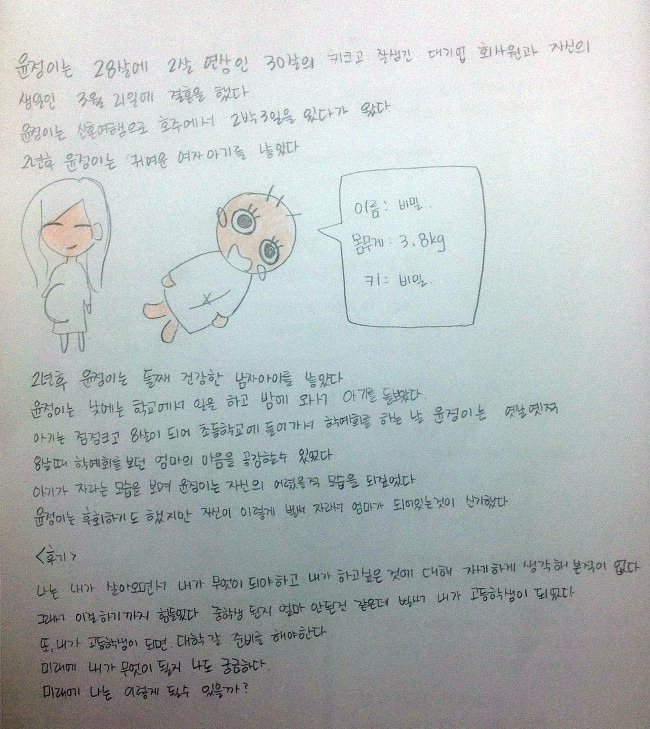 윤정이는 28살에 2살 연상인 30살의 키크고 잘생긴 대기업 회사원과 자신의
생일인 3월 21일에 결혼을 했다
윤정이는 신혼여행으로 호주에서 2박3일을 있다가 왔다
2년후 윤정이는 귀여운 여자아기를 낳았다
이름: 비밀.
몸무게: 3.8kg
키: 비밀.
2년후 윤정이는 둘째 건강한 남자아이를 낳았다
윤정이는 낮에는 학교에서 일을 하고 밤에 와서 아기를 돌보았다
아기는 점점크고 8살이 되어 초등학교에 들어가서 학예회를 하는 날 윤정이는 옛날옛적
8살때 학예회를 보던 엄마의 마음을 공감할수 있었다
아기가 자라는 모습을 보며 윤정이는 자신의 어렸을적 모습을 되짚었다
윤정이는 후회하기도 했지만 자신이 이렇게 벌써 자라서 엄마가 되어있는것이 신기했다
<후기>
나는 내가 살아오면서 내가 무엇이 되야하고 내가 하고싶은 것에 대해 자세하게 생각해 본적이 없다
그래서 이걸하기까지 힘들었다 중학생 된지 얼마 안된것 같은데 벌써 내가 고등학생이 되었다
또, 내가 고등학생이 되면 대학갈 준비를 해야한다
미래에 내가 무엇이 될지 나도 궁금하다.
미래에 나는 이렇게 될수 있을까?